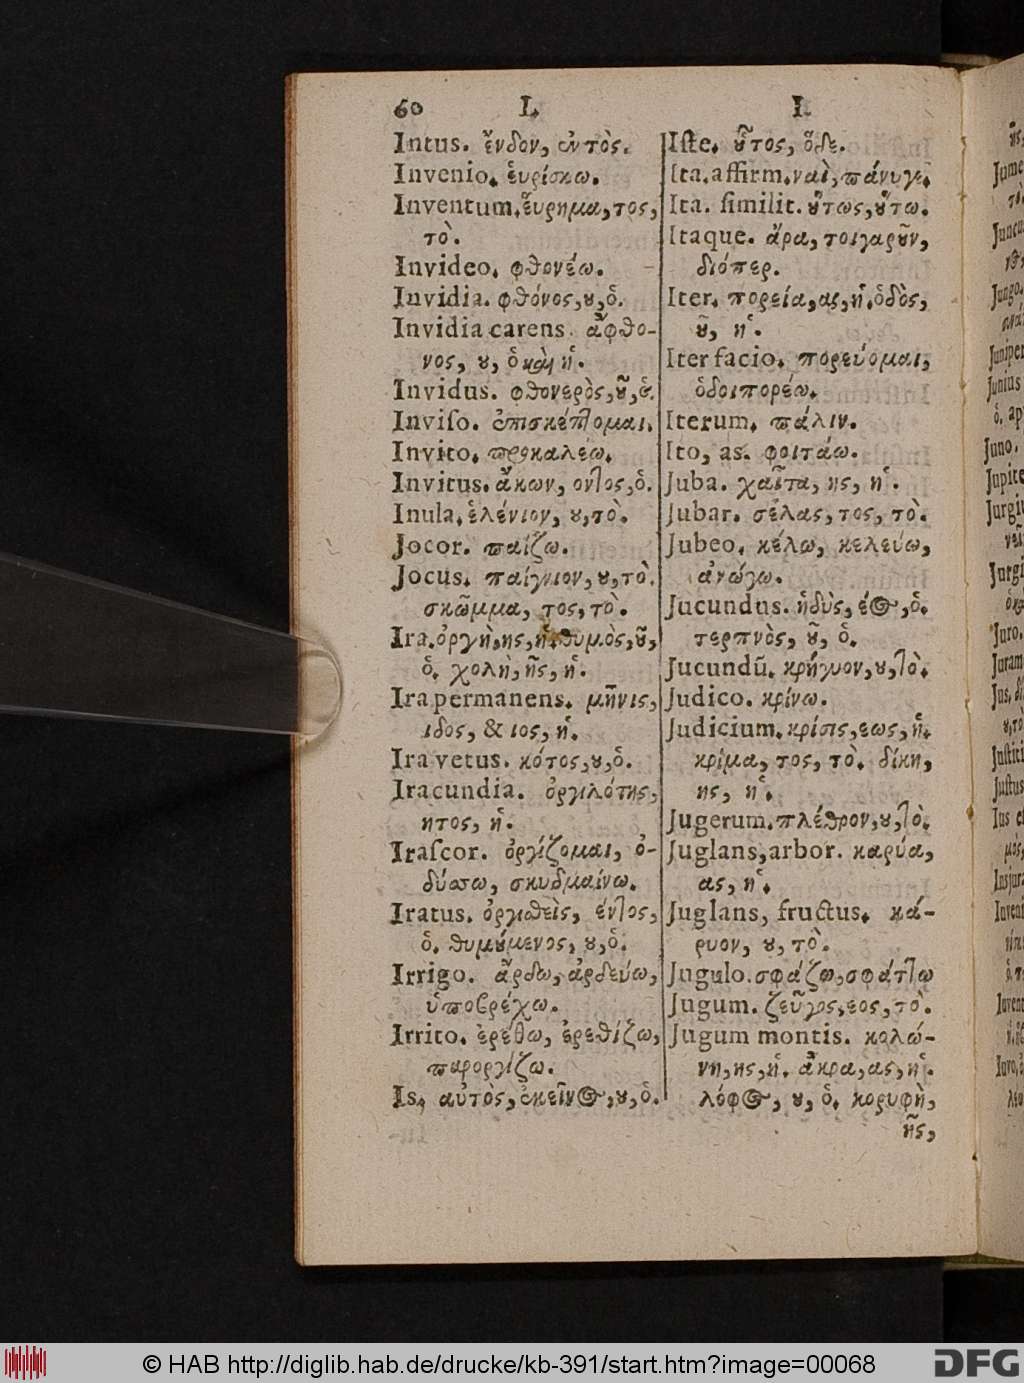 60 I. I.
Intus. ἔνδον, ἐντὸς.
Invenio. ἑυρίσκω.
Inventum. ἕυρημα, τος,
τὸ.
Invideo. φθονέω.
Invidia. φθόνος, ȣ, ὁ.
Invidia carens. ἄφθο-
νος, ȣ, ὁ καὶ ἡ.
Invidus. φθονερὸς, ȣ͂, ὁ.
Inviſo. ἐπισκέπτομαι.
Invito. προκαλέω.
Invitus. ἄκων, οντος, ὁ.
Inula. ἑλένιον, ȣ, τὸ.
Jocor. παίζω.
Jocus. παίγνιον, ȣ, τὸ.
σκῶμμα, τος, τὸ.
Ira. ὀργὴ, ης, ἡ. θυμὸς, ȣ͂,
ὁ. χολὴ, ῆς, ἡ.
Ira permanens. μῆνις,
ιδος, & ιος, ἡ.
Ira vetus. κότος, ȣ, ὁ.
Iracundia. ὀργιλότης,
ητος, ἡ.
Iraſcor. ὀργίζομαι, ὀ-
δύσσω, σκυδμαίνω.
Iratus. ὀργισθεὶς, έντος,
ὁ. θυμȣ́μενος, ȣ, ὁ.
Irrigo. ἄρδω, ἀρδεύω,
ὑποβρέχω.
Irrito. ἐρέθω, ἐρεθίζω,
παροργίζω.
Is, αὐτὸς, ἐκεῖνος, ȣ, ὁ.
Iſte. ȣ̃τος, ὅδε.
Ita. affirm. ναὶ, πάνυγε.
Ita. ſimilit. ȣ̔́τως, ȣ̔́τω.
Itaque. ἄρα, τοιγαρȣ͂ν,
διόπερ.
Iter. πορεία, ας, ἡ. ὁδὸς,
ȣ͂, ἡ.
Iter facio. πορεύομαι,
ὁδοιπορέω.
Iterum. πάλιν.
Ito, as. φοιτάω.
Juba. χαῖτα, ης, ἡ.
Jubar. σέλας, τος, τὸ.
Jubeo. κέλω, κελεύω,
ἀνώγω.
Jucundus. ἡδὺς, έος, ὁ.
τερπνὸς, ȣ͂, ὁ.
Jucundũ. κρήγυον, ȣ, τὸ.
Judico. κρίνω.
Judicium. κρίσις, εως, ἡ.
κρίμα, τος, τὸ. δίκη,
ης, ἡ.
Jugerum. πλέθρον, ȣ, τὸ.
Juglans, arbor. καρύα,
ας, ἡ.
Juglans, fructus. κά-
ρυον, ȣ, τὸ.
Jugulo. σφάζω, σφάττω
Jugum. ζεῦγος, εος, τὸ.
Jugum montis. κολώ-
νη, ης, ἡ. ἄκρα, ας, ἡ.
λόφος, ȣ, ὁ. κορυφὴ,
ῆς,
© HAB http://diglib.hab.de/drucke/kb-391/start.htm?image=00068
DFG